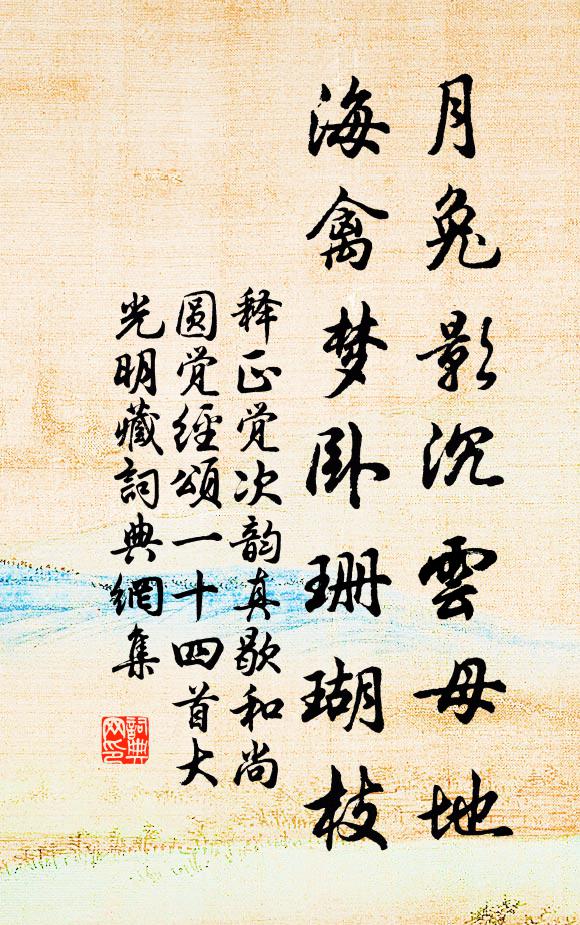 月兔影沉雲母地
海禽梦卧珊瑚枝
释正觉次韵真歇和尚
圆觉经颂一十四首大
光明藏詞典網集
詞典
网印